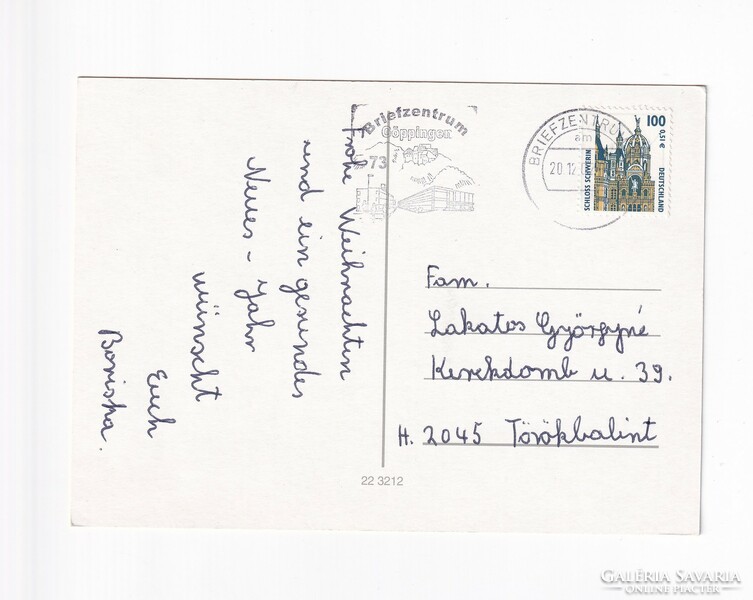 Frohe Weihnachten
und ein gesundes
Neues - Jahr
wünscht
Euch
Boriska.
Briefzentrum
Göppingen
73
BRIEFZENTRUM
am
20.12.
100
0,51 €
SCHLOSS SCHWERIN
DEUTSCHLAND
Fam.
Lakatos Györgyné
Kerekdomb u. 39.
H. 2045 Törökbalint
22 3212
GALÉRIA SAVARIA
ONLINE PIACTÉR